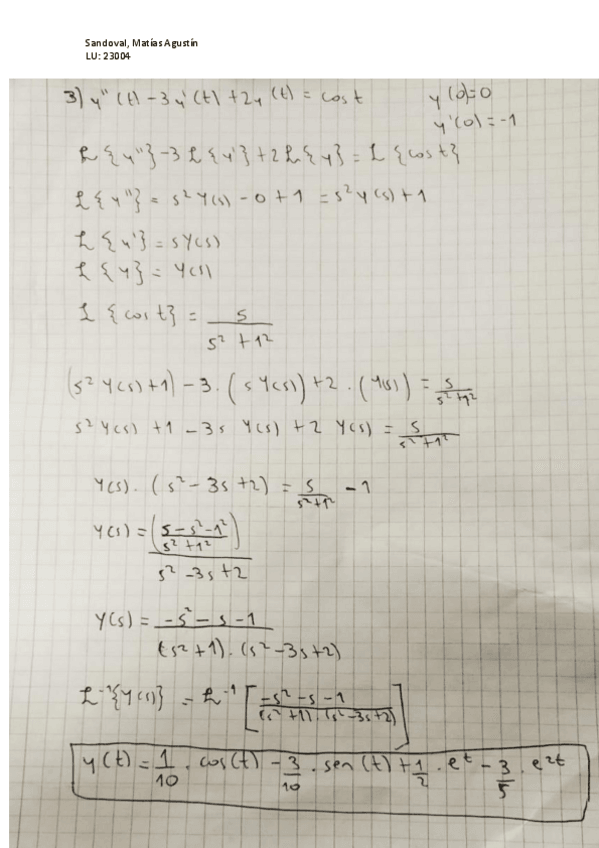 Sandoval, Matías Agustín
LU: 23004
3) y''(t) - 3y'(t) + 2y(t) = cos t    y(0)=0
y'(0) = -1
ℒ{y''} - 3ℒ{y'} + 2ℒ{y} = ℒ{cos t}
ℒ{y''} = s² Y(s) - 0 + 1 = s² Y(s) + 1
ℒ{y'} = sY(s)
ℒ{y} = Y(s)
ℒ{cos t} = s / (s² + 1²)
(s² Y(s) + 1) - 3 · (s Y(s)) + 2 · (Y(s)) = s / (s² + 1²)
s² Y(s) + 1 - 3s Y(s) + 2 Y(s) = s / (s² + 1²)
Y(s) · (s² - 3s + 2) = s / (s² + 1²) - 1
Y(s) = ((s - s² - 1²) / (s² + 1²)) / (s² - 3s + 2)
Y(s) = (-s² - s - 1) / ((s² + 1) · (s² - 3s + 2))
ℒ⁻¹{Y(s)} = ℒ⁻¹ [(-s² - s - 1) / ((s² + 1) · (s² - 3s + 2))]
y(t) = 1/10 · cos(t) - 3/10 · sen(t) + 1/2 · eᵗ - 3/5 · e²ᵗ